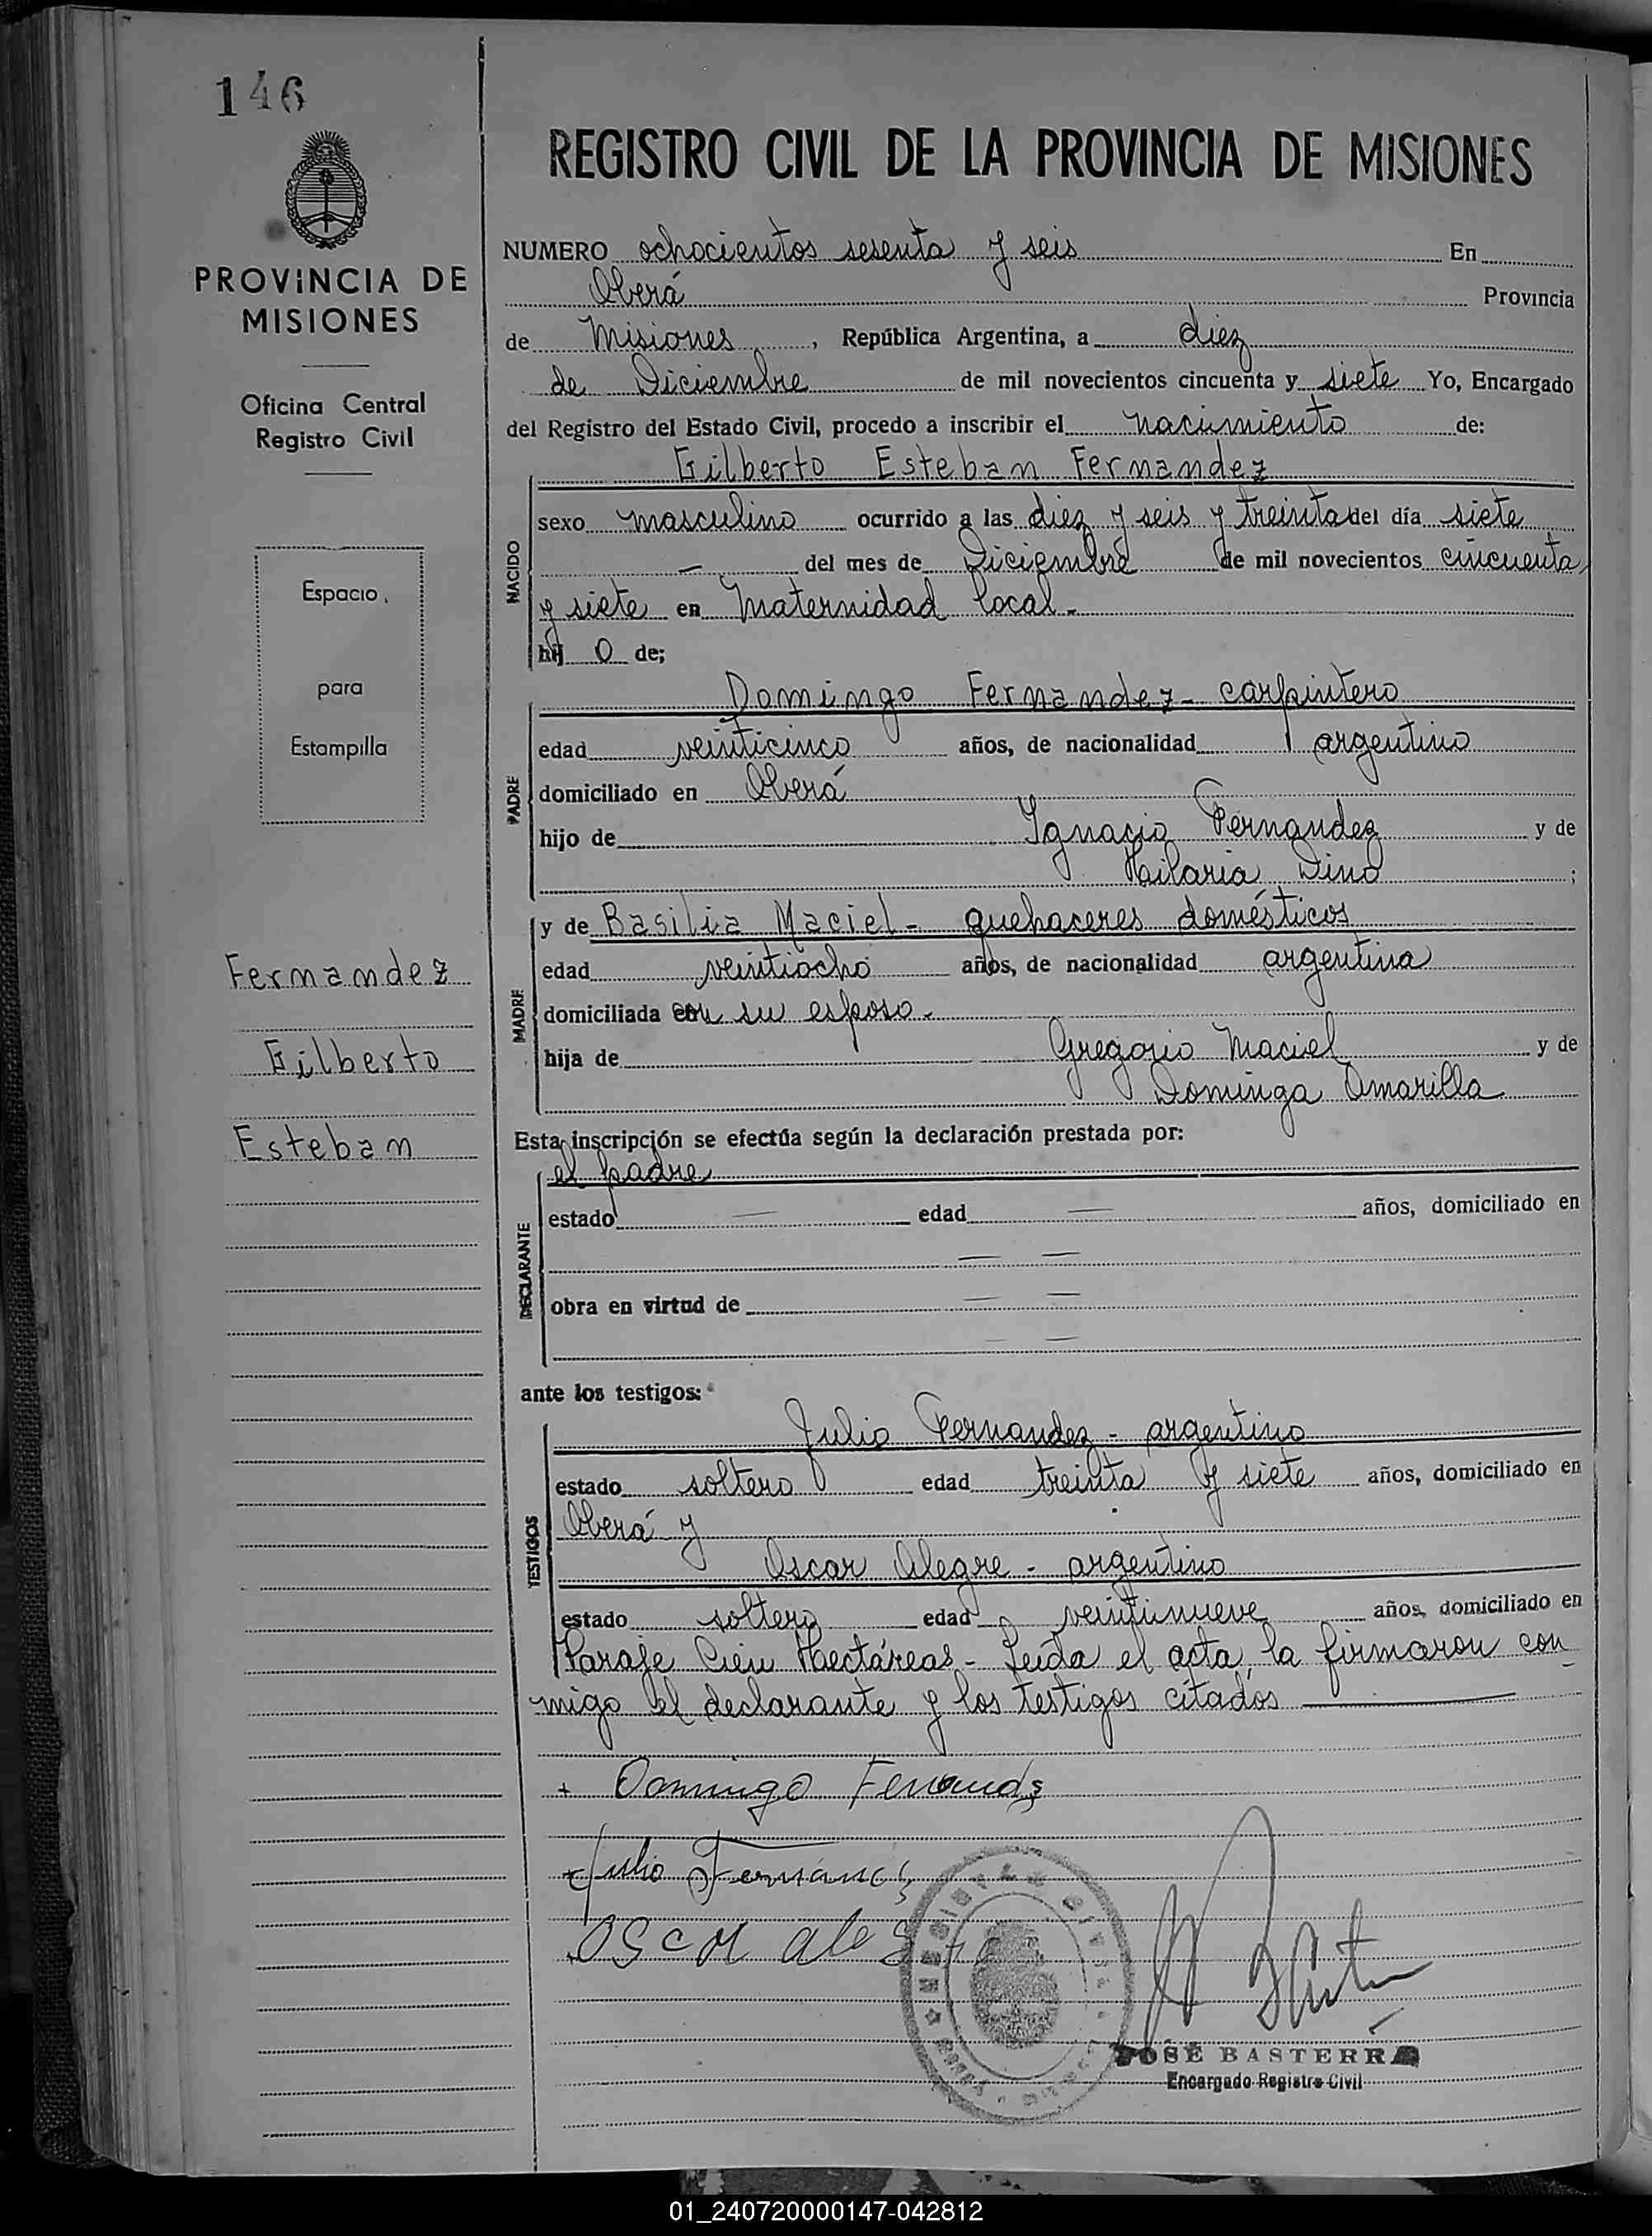 146
REGISTRO CIVIL DE LA PROVINCIA DE MISIONES
PROVINCIA DE
MISIONES
Oficina Central
Registro Civil
Espacio
para
Estampilla
Fernandez
Gilberto
Esteban
NUMERO ochocientos sesenta y seis En
Oberá Provincia
de Misiones, República Argentina, a diez
de Diciembre de mil novecientos cincuenta y siete Yo, Encargado
del Registro del Estado Civil, procedo a inscribir el nacimiento de:
Gilberto Esteban Fernandez
NACIDO
sexo masculino ocurrido a las diez y seis y treinta del día siete
— del mes de Diciembre de mil novecientos cincuenta
y siete en Maternidad local.-
hij o de;
PADRE
Domingo Fernandez - carpintero
edad veinticinco años, de nacionalidad argentino
domiciliado en Oberá
hijo de Ignacio Fernandez y de
Hilaria Dino ;
MADRE
y de Basilia Maciel - quehaceres domésticos
edad veintiocho años, de nacionalidad argentina
domiciliada con su esposo.-
hija de Gregorio Maciel y de
Dominga Amarilla
Esta inscripción se efectúa según la declaración prestada por:
DECLARANTE
el padre
estado — edad — años, domiciliado en
— —
obra en virtud de — —
— —
ante los testigos:
TESTIGOS
Julio Fernandez - argentino
estado soltero edad treinta y siete años, domiciliado en
Oberá y
Oscar Alegre - argentino
estado soltero edad veintinueve años, domiciliado en
Paraje Cien Hectáreas - Leída el acta, la firmaron con
migo el declarante y los testigos citados
+ Domingo Fernandz
Julio Fernandz
Oscar
JOSÉ BASTERRA
Encargado Registro Civil
01_240720000147-042812